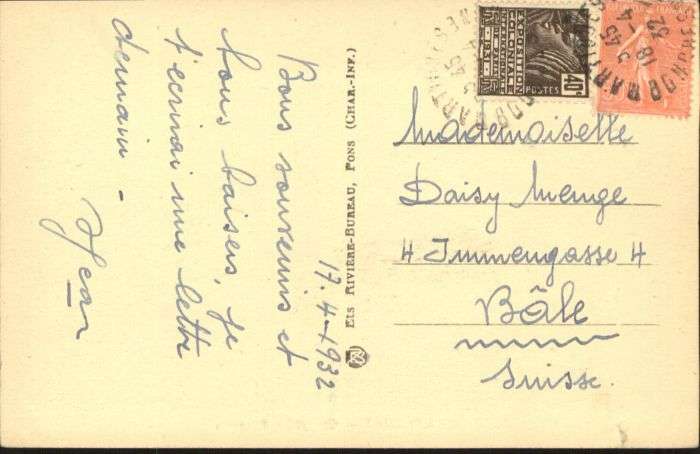 17.4-1932
Bons souvenirs et
bons baisers, je
t'ecrirai une lettre
demain -
Jean
Ets RIVIÈRE-BUREAU, PONS (CHAR.-INF.)
EXPOSITION
COLONIALE
INTERNATIONALE
DE PARIS 1931
40c
POSTES
18-4
32
Mademoiselle
Daisy Menge
4 Immengasse 4
Bâle
Suisse.